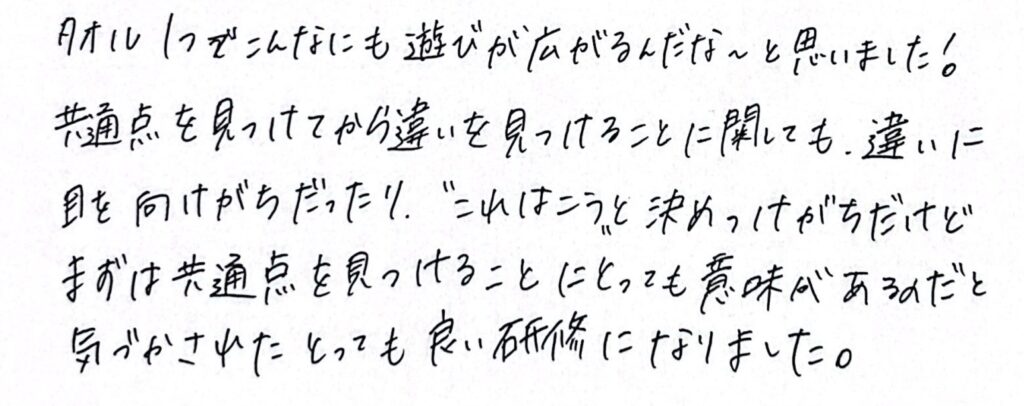 タオル1つでこんなにも遊びが広がるんだな～と思いました!
共通点を見つけてから違いを見つけることに関しても、違いに
目を向けがちだったり、"これはこう"と決めつけがちだけど
まずは共通点を見つけることにとっても意味があるのだと
気づかされたとっても良い研修になりました。